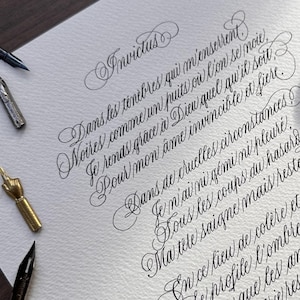 Invictus
Dans les ténèbres qui m'enserrent
Noires comme un puits où l'on se noie
Je rends grâce à Dieu quel qu'il soit
Pour mon âme invincible et fière.
Dans de cruelles circonstances
Je n'ai ni gémi ni pleuré
Tous les coups du hasard
Ma tête saigne mais reste
En ce lieu de colère et
Se profile l'ombre
que les an